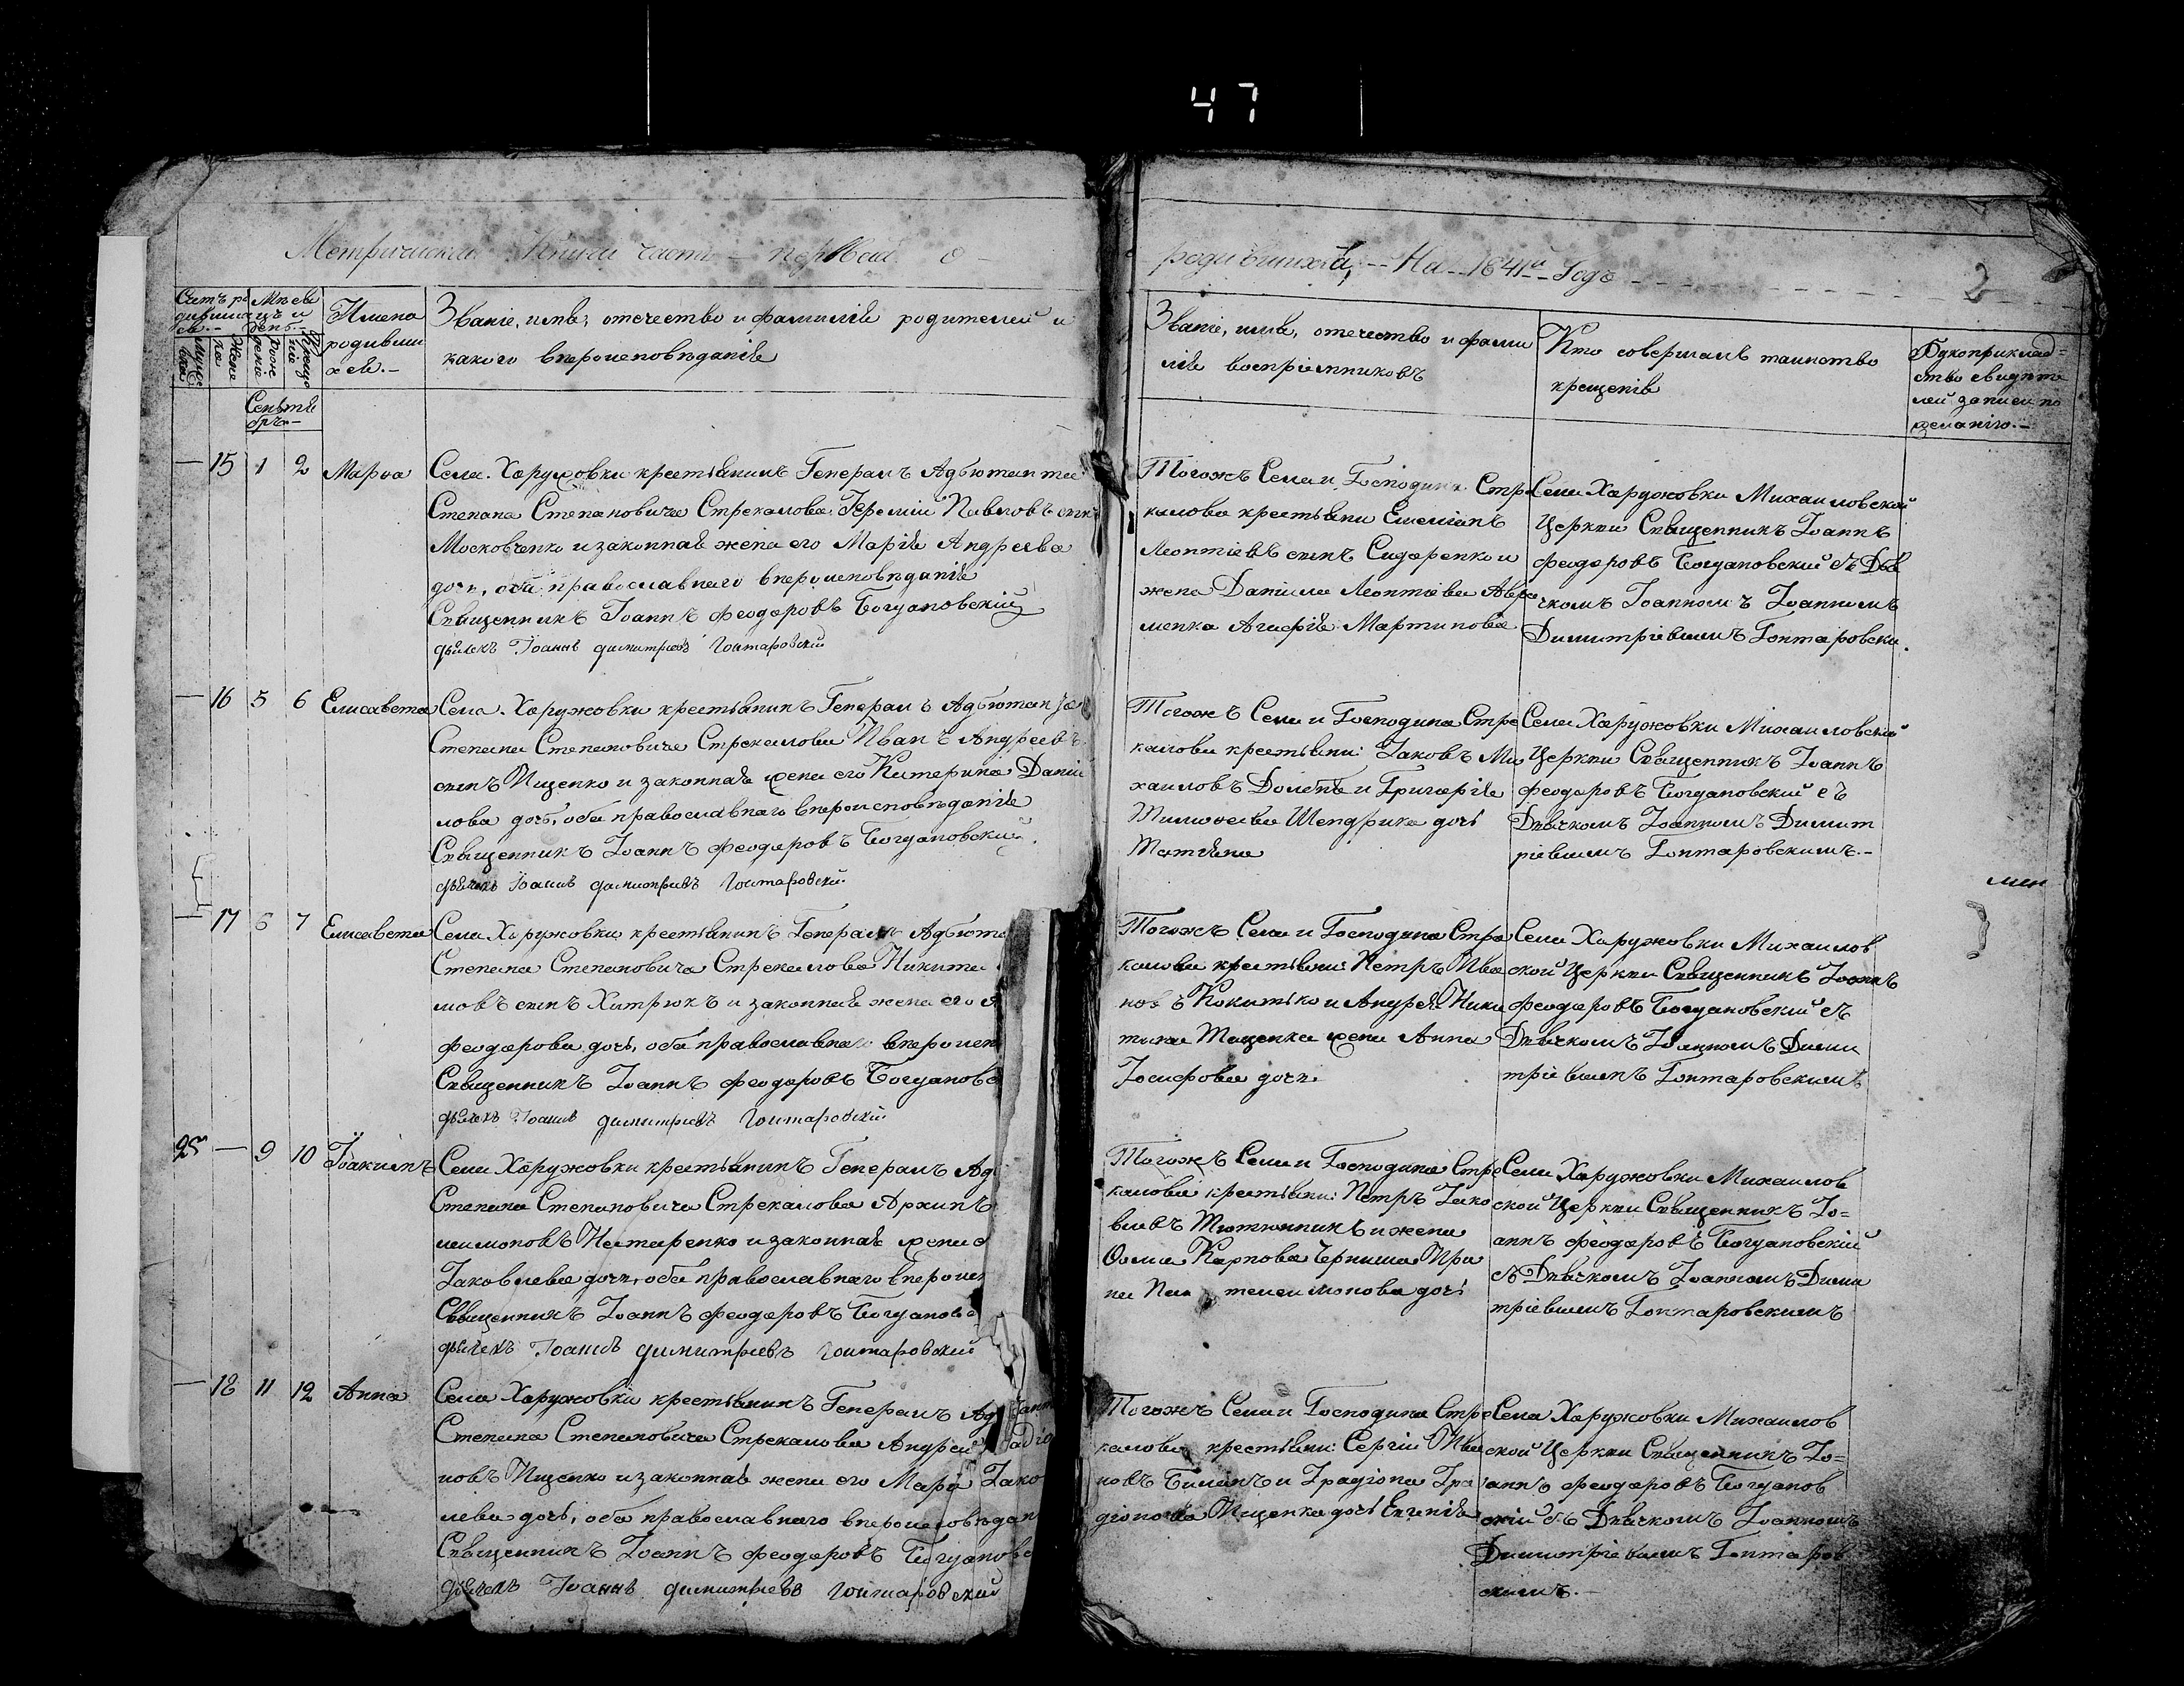 47
Метрической Книги часть первая о
родившихся, На 1841й Годъ
2
Счетъ ро
дивших
ся.
Мѣся
цъ и
день.
Имена
родивши
хся.
Званіе, имя, отечество и фамилія родителей и
какого вѣроисповѣданія
Муже
ска
Жене
ска
рож
деніе
Креще
нія
Сентя
бръ
Званіе, имя, отечество и фами
лія воспріемниковъ
Кто совершалъ таинство
крещенія
Рукоприклад=
ство свидѣте
лей записи по
желанію.
15 1 2 Марѳа
Села Харужовки крестьянинъ Генералъ Адъютанта
Степана Степановича Стрекалова Іеремій Павловъ сынъ
Московченко и законная жена его Марія Андреева
дочь, оба православнаго вѣроисповѣданія
Священникъ Іоаннъ Феодоровъ Богдановскій
дьячекъ Іоаннъ Димитріевъ Гонтаровскій
Тогожъ Села и Господина Стре
калова крестьяни Емеліанъ
Леонтіевъ сынъ Сидоренко и
жена Даниила Леонтіева Авра
менка Агафія Мартинова
Села Харужовки Михаиловской
Церкви Священникъ Іоаннъ
Феодоровъ Богдановскій съ Дья
чкомъ Іоанномъ
Димитріевымъ Гонтаровски.
16 5 6 Елисавета
Села Харужовки крестьянинъ Генералъ Адъютанта
Степана Степановича Стрекалова Иванъ Андреевъ
сынъ Ищенко и законная жена его Катерина Дании
лова дочь, оба православнаго вѣроисповѣданія
Священникъ Іоаннъ Феодоровъ Богдановскій
дьячекъ Іоаннъ Димитріевъ Гонтаровскій
Тогожъ Села и Господина Стре
калова крестьяни: Іаковъ Ми
хаиловъ и Григорія
Тимофеева Шендрика дочь
Татіяна
Села Харужовки Михаиловской
Церкви Священникъ Іоаннъ
Феодоровъ Богдановскій съ
Дьячкомъ Іоанномъ Димит
ріевымъ Гонтаровскимъ.
17 6 7 Елисавета
Села Харужовки крестьянинъ Генералъ Адъюта
Степана Степановича Стрекалова Никита
мовъ сынъ Хитрюкъ и законная жена его
Феодорова дочь, оба православнаго вѣроисп
Священникъ Іоаннъ Феодоровъ Богдановс
дьячекъ Іоаннъ Димитріевъ Гонтаровскій
Тогожъ Села и Господина Стре
калова крестьяни: Петръ Ива
новъ и Андрея Ники
тина жена Анна
Іосифова дочь
Села Харужовки Михаилов
ской Церкви Священникъ Іоаннъ
Феодоровъ Богдановскій съ
Дьячкомъ Іоанномъ Дими
тріевымъ Гонтаровскимъ
25 9 10 Іоакимъ
Села Харужовки крестьянинъ Генералъ Ад
Степана Степановича Стрекалова Архипъ
Нестеренко и законная жена е
Іаковлева дочь, оба православнаго вѣроисп
Священникъ Іоаннъ Феодоровъ Богдановс
дьячекъ Іоаннъ Димитріевъ Гонтаровскій
Тогожъ Села и Господина Стре
калова крестьяни: Петръ Іако
влевъ Тютюнникъ и жена
Фома Карпова Черниша Ири
на Пантелеимонова дочь
Села Харужовки Михаилов
ской Церкви Священникъ Іо=
аннъ Феодоровъ Богдановскій
съ Дьячкомъ Іоанномъ Дими
тріевымъ Гонтаровскимъ
18 11 12 Анна
Села Харужовки крестьянинъ Генералъ Ад
Степана Степановича Стрекалова Андрей
новъ Ищенко и законная жена его Марія Іако
лева дочь, оба православнаго вѣроисповѣдан
Священникъ Іоаннъ Феодоровъ Богдановс
дьячекъ Іоаннъ Димитріевъ Гонтаровскій
Тогожъ Села и Господина Стре
калова крестьяни: Сергій Ива
новъ и Ірадіона Іра
діонова Ищенка дочь Евгенія
Села Харужовки Михаилов
ской Церкви Священникъ Іо=
аннъ Феодоровъ Богданов
скій съ Дьячкомъ Іоанномъ
Димитріевымъ Гонтаров
скимъ.